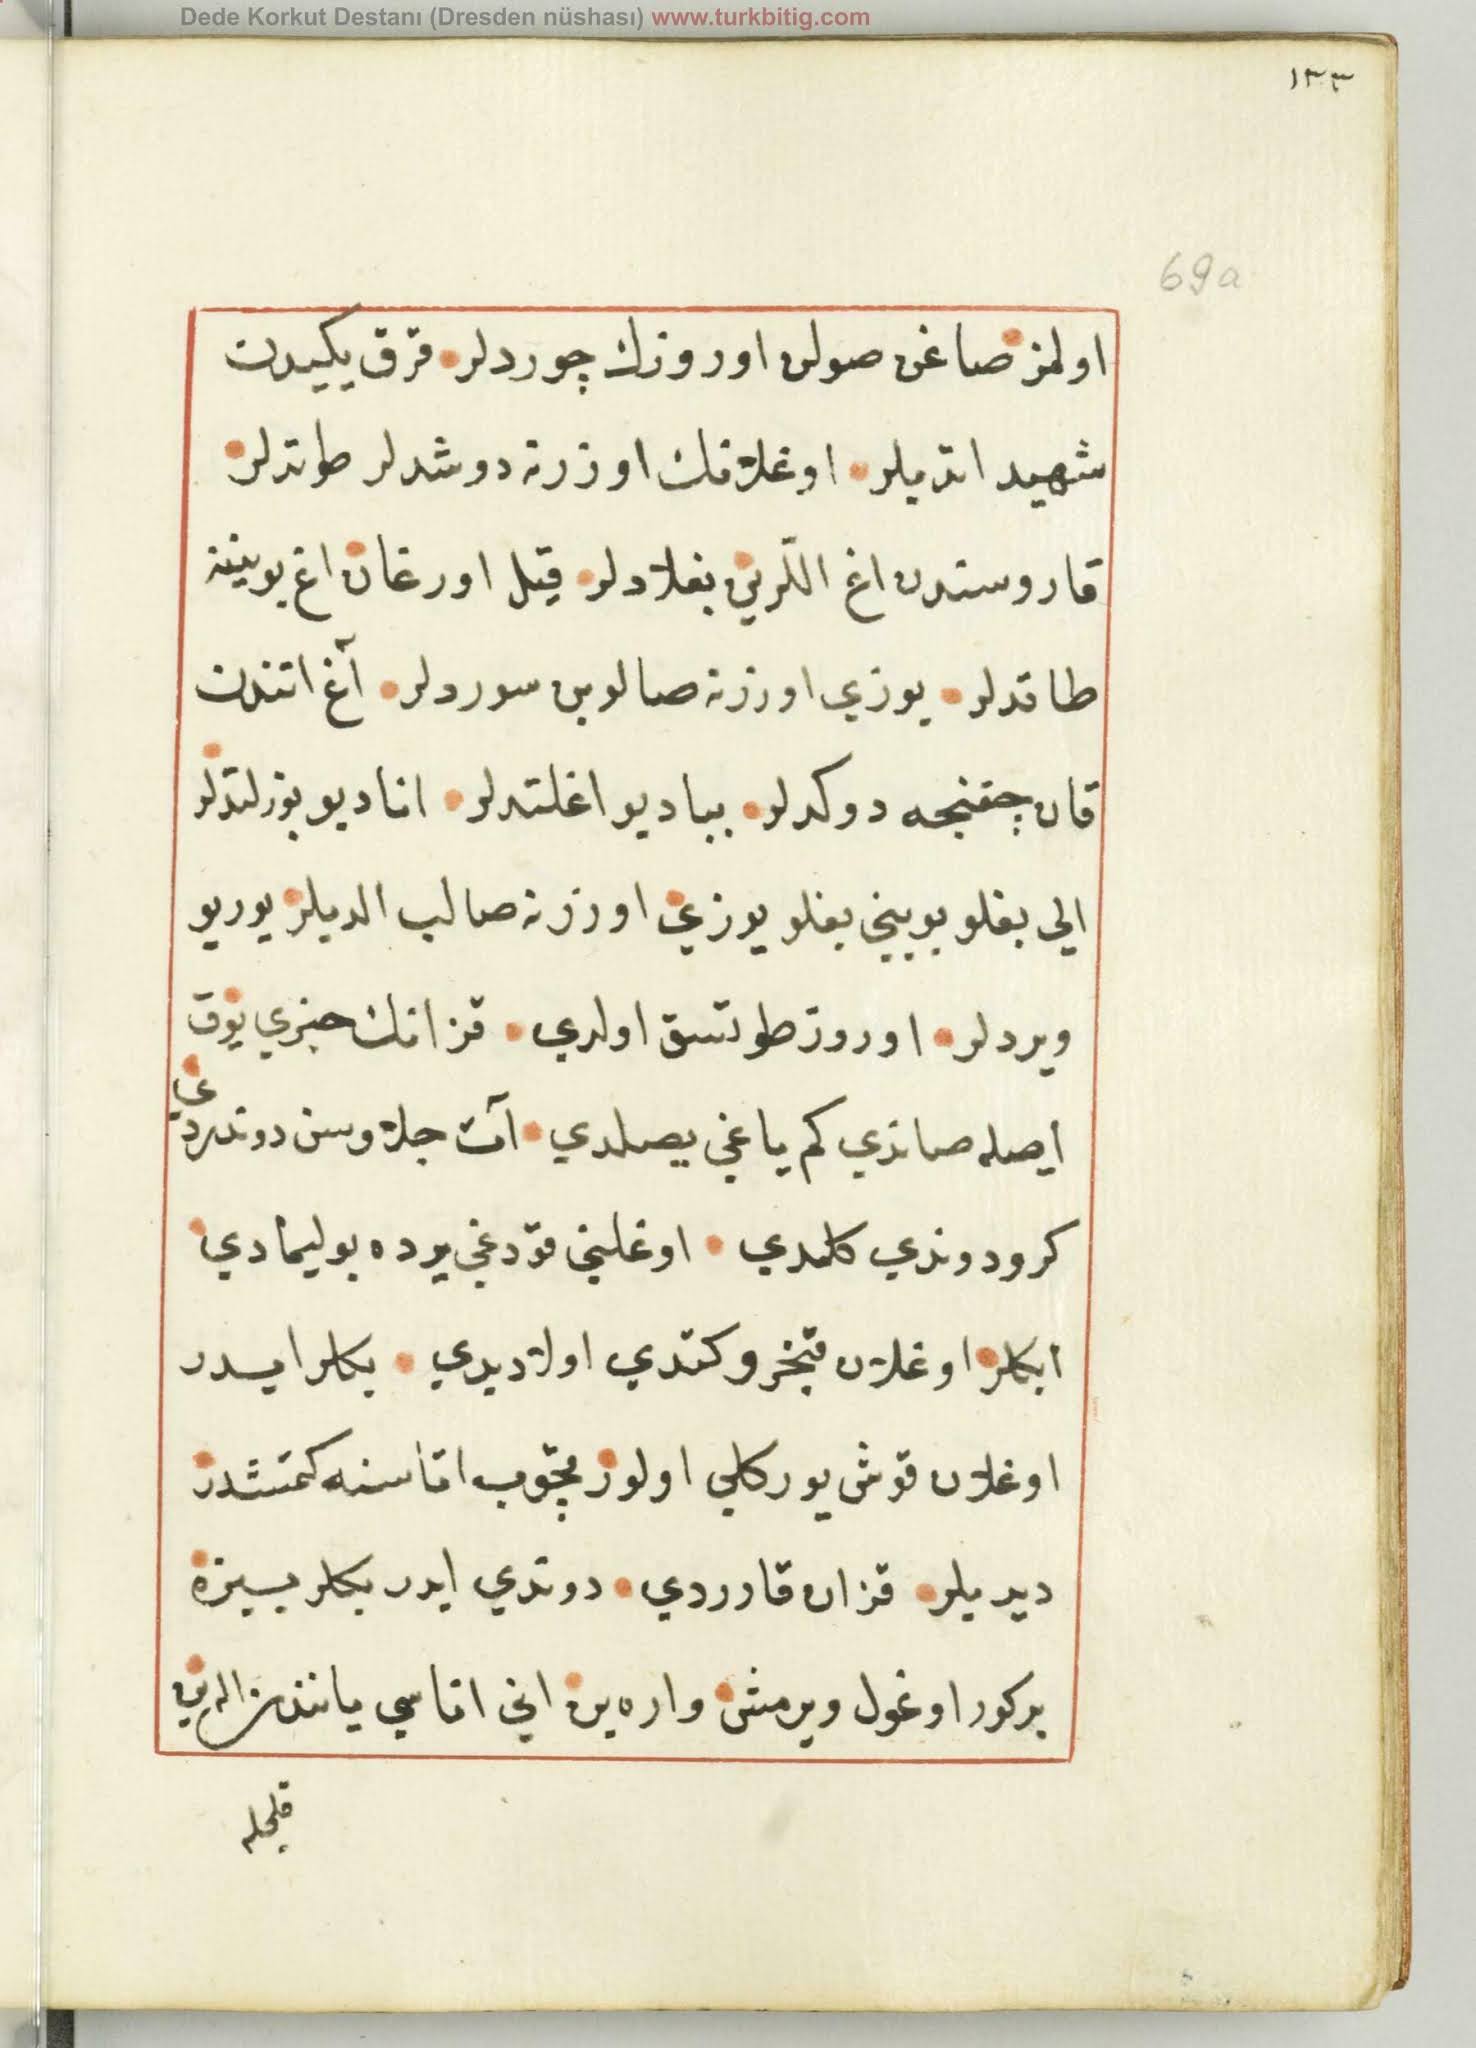 Dede Korkut Destanı (Dresden nüshası) www.turkbitig.com
١٣٣
69a
اولمز صاغن صولن اوروزك چوردلر قرق يكيدن
شهيد اتديلر اوغلانك اوزرنه دوشدلر طوتدلر
قاروسندن اغ اللرين بغلادلر قيل اورغان اغ بوينينه
طاقدلر يوزي اوزرنه صالوبن سوردلر آغ اتندن
قان چقنجه دوكدلر ببا ديو اغلتدلر انا ديو بوزلتدلر
الي بغلو بويني بغلو يوزي اوزرنه صالب الديلر يوريو
ويردلر اوروز طوتسق اولدي قزانك خبري يوق
ايصله صاندي كم ياغي بصلدي آت جلاوسن دوندردي
كرو دوندي كلمدي اوغلني قودغي يرده بوليمادي
ابكلر اوغلان قنجرو كتدي اولا ديدي بكلر ايدر
اوغلان قوش يوركلي اولور قچوب اناسنه كتمشدر
ديديلر قزان قارردي دوندي ايدر بكلر بيزه
بر كور اوغول ويرمش واره ين اني اناسي يانندن الەين
قلجله